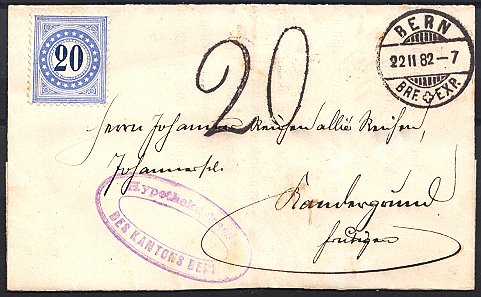 20
20
BERN
22 II 82 - 7
BRF. EXP.
Herrn Johannes Reichen allié Reichen,
Johannes sel.
Kandergrund
frutigen
Hypothekarkasse
DES KANTONS BERN